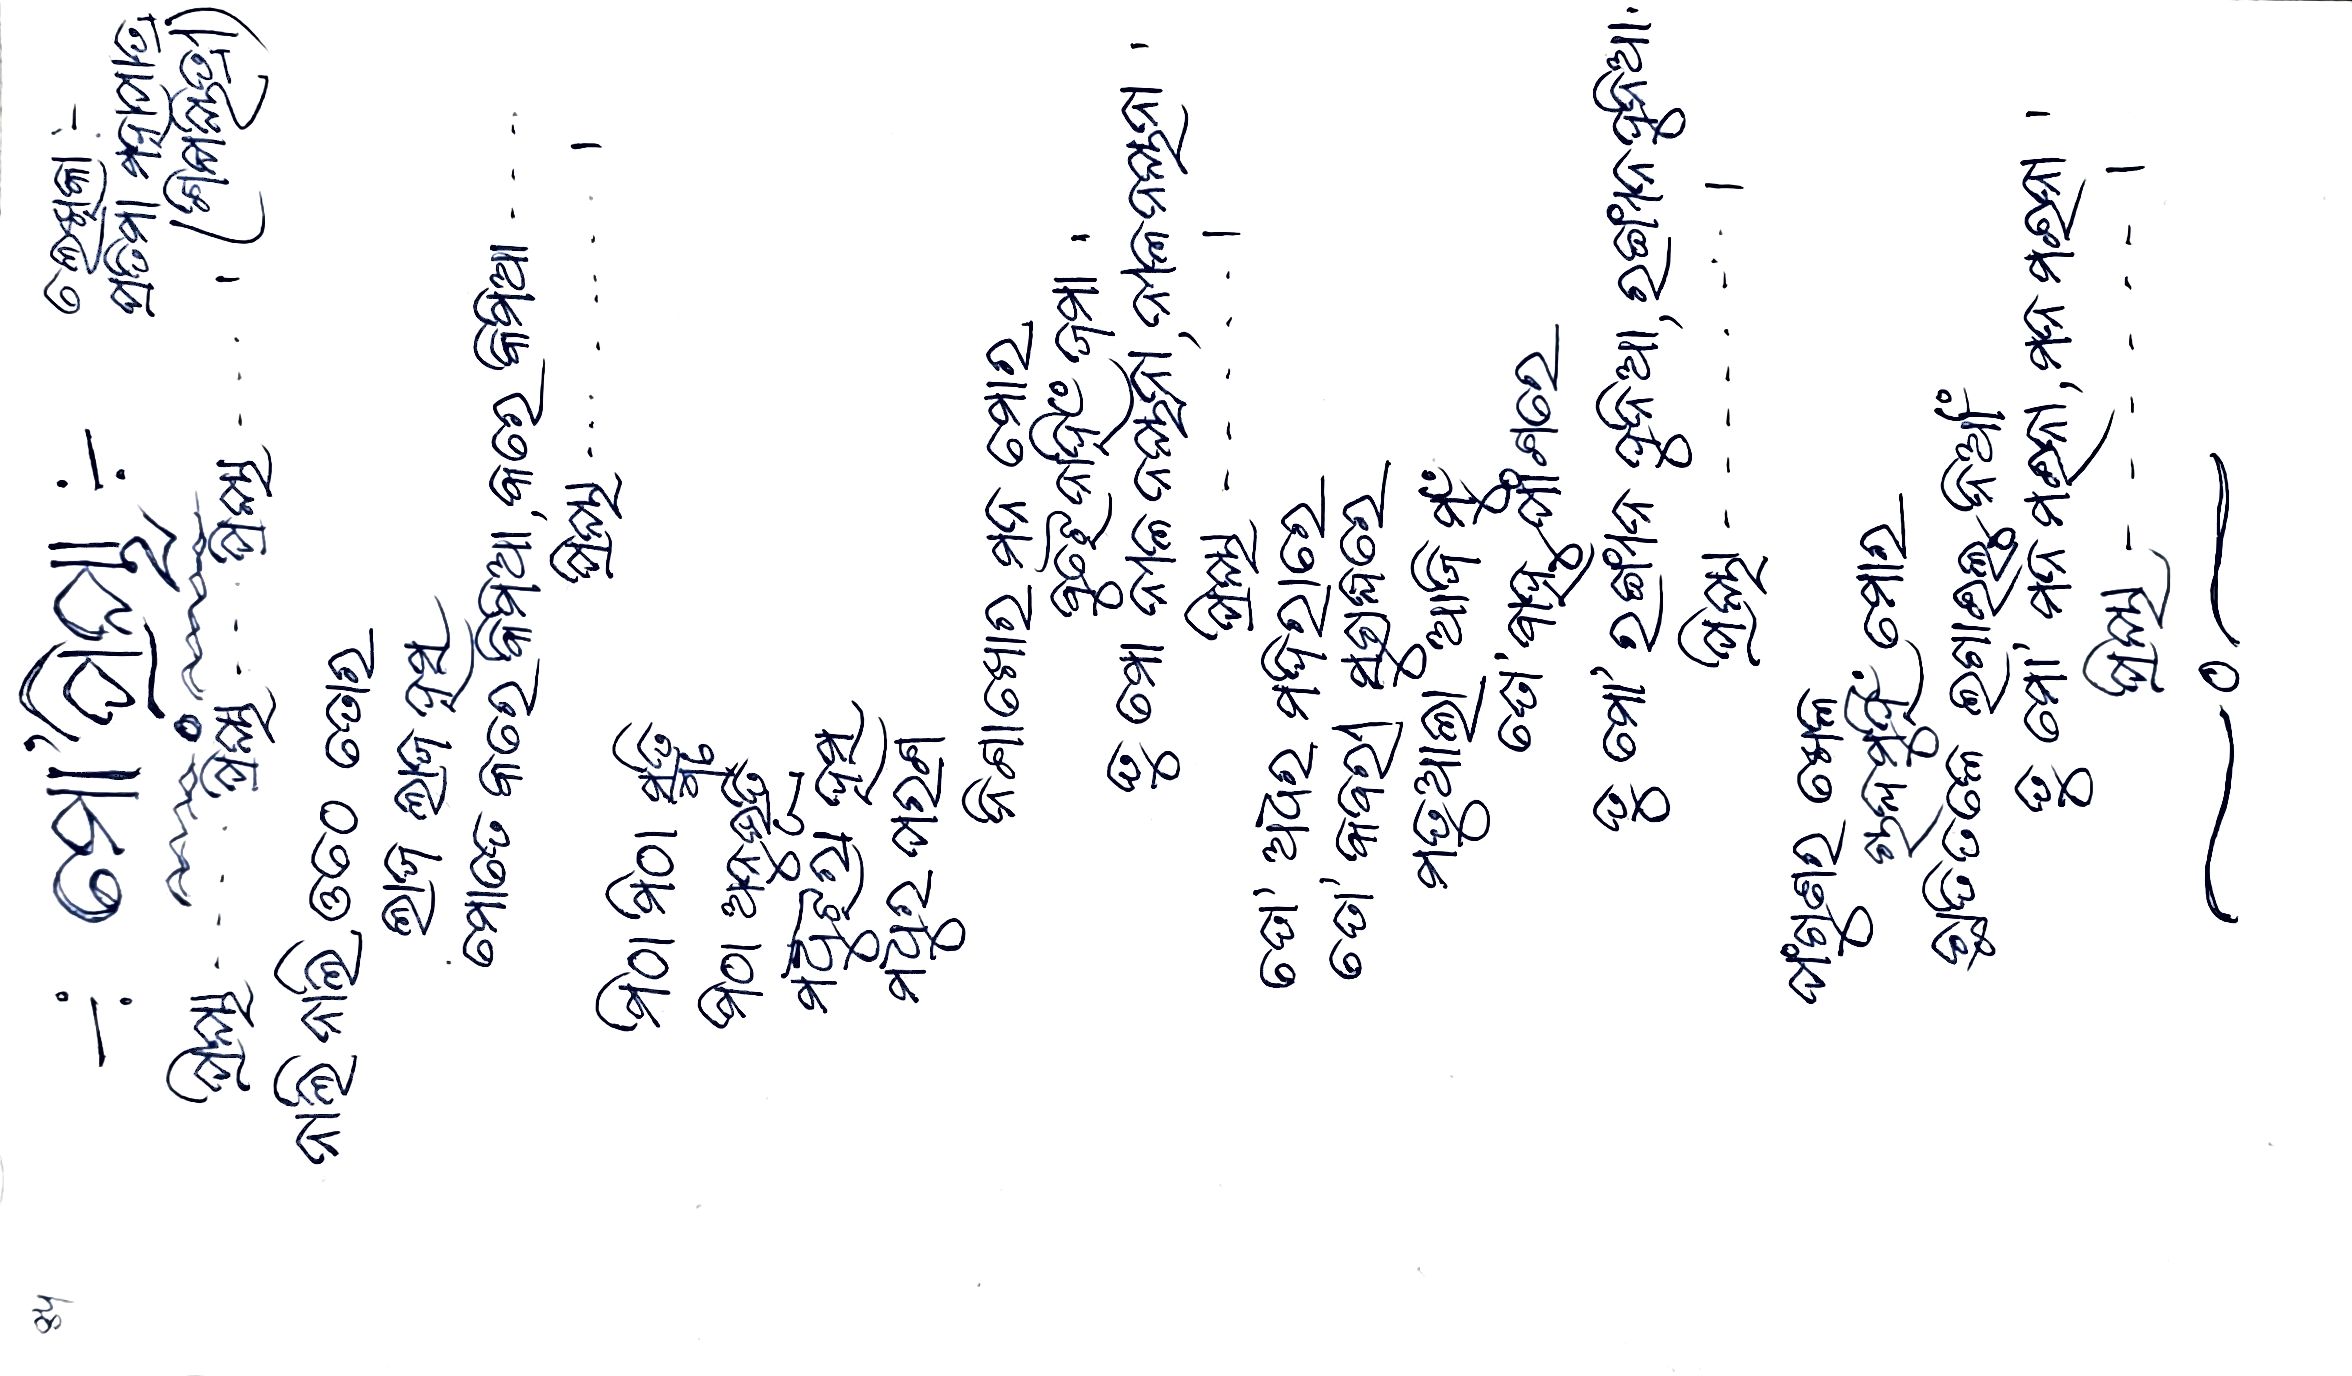 ୫୳
-: ମୋ' ପ୍ରିୟା :-
ଲେଖିକା :-
ପ୍ରତିମା ମହାପାତ୍ର
ପ୍ରିୟା - - - - ପ୍ରିୟା - - - ପ୍ରିୟା - - - - ।
ନାଲି ନାଲି ଓଠେ ତୋର
ଲାଜ ଲାଜ ହସ
ମୋତେ କରେ କିମିଆ, କରେ କିମିଆ - - - -
ପ୍ରିୟା - - - - - - - - ।
ମିଠା ମିଠା ସ୍ମୃତି
ମିଠା ଅନୁଭୂତି
ମଧୁଝରା ହସ
ମଧୁର ପରଶ
ନିଶାଖୋର ମନ ମୋର
ବୁଝେ ନାହିଁ ଜମା ।
ତୁ ମୋ ନୀଳ ନୟନା, ନୀଳ ନୟନା ।
ପ୍ରିୟା - - - - - ।
ତୋ' ଅଧର ମଦିରାରେ
ତୋ' କବରୀ ସୁଗନ୍ଧରେ
ମତୁଆଲା ଆଜି ମୁଁ
ତୋ' ବାହୁ ପାଶରେ
ତୁ ମୋ' ରଙ୍ଗୀନ ଦୁନିଆ, ରଙ୍ଗୀନ ଦୁନିଆ ।
ପ୍ରିୟା - - - - - - - - ।
ଫଗୁଣର ଖେଳ
ଚାନ୍ଦମୁହିଁ ମୋର
ଛାତିତଳେ ଲଗାଇଲୁ ନିଆଁ
ତୁ ମୋ' ମନ ମଇନା, ମନ ମଇନା ।
ପ୍ରିୟା - - - - - - ।